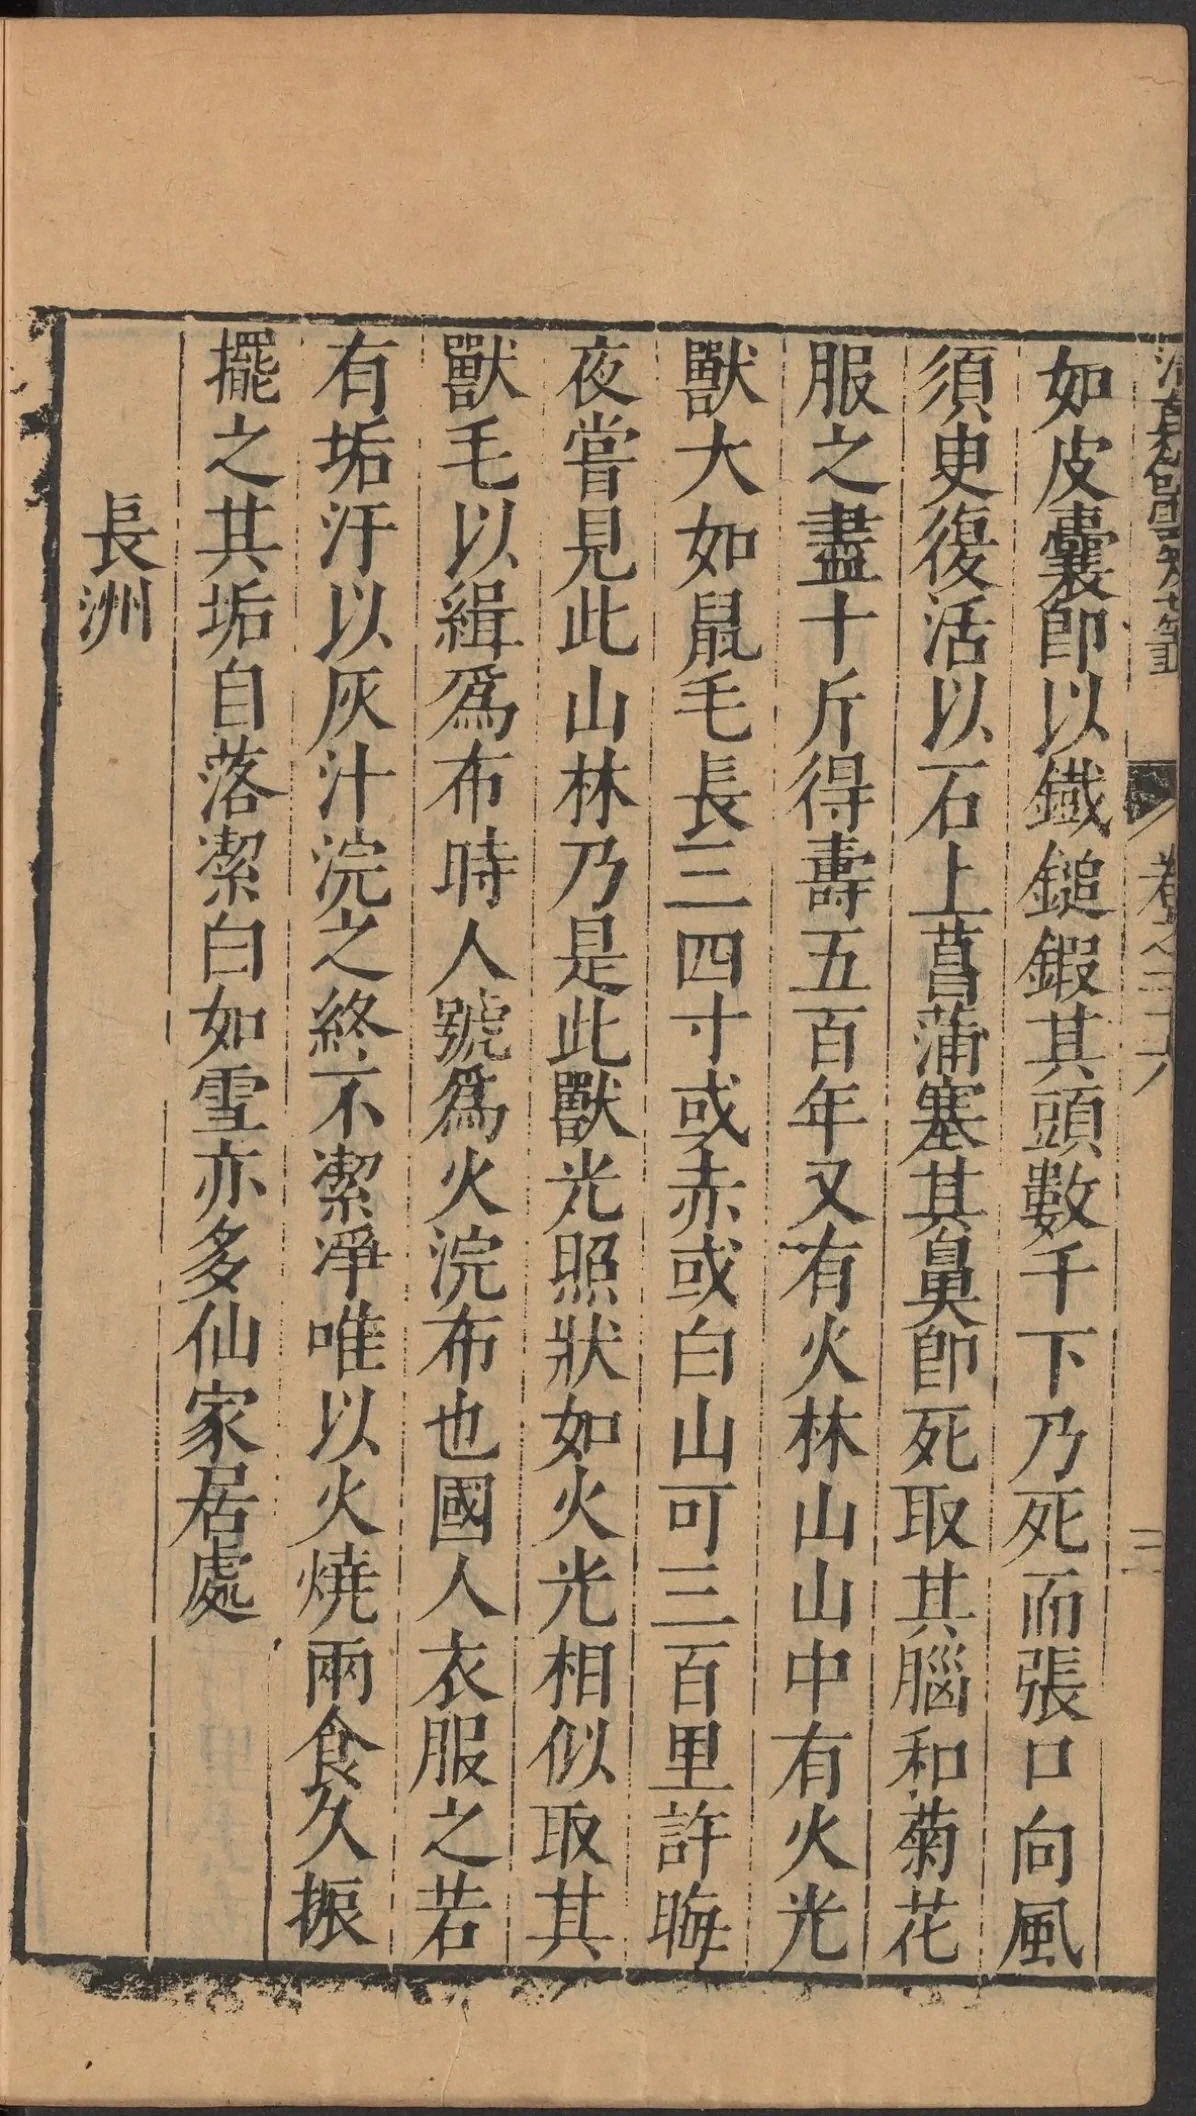 卷之二十六
三
如皮囊卽以鐵鎚鍜其頭數千下乃死而張口向風
須臾復活以石上菖蒲塞其鼻卽死取其腦和菊花
服之盡十斤得壽五百年又有火林山山中有火光
獸大如鼠毛長三四寸或赤或白山可三百里許晦
夜嘗見此山林乃是此獸光照狀如火光相似取其
獸毛以緝爲布時人號爲火浣布也國人衣服之若
有垢汙以灰汁浣之終不潔淨唯以火燒兩食久振
擺之其垢自落潔白如雪亦多仙家居處
長洲